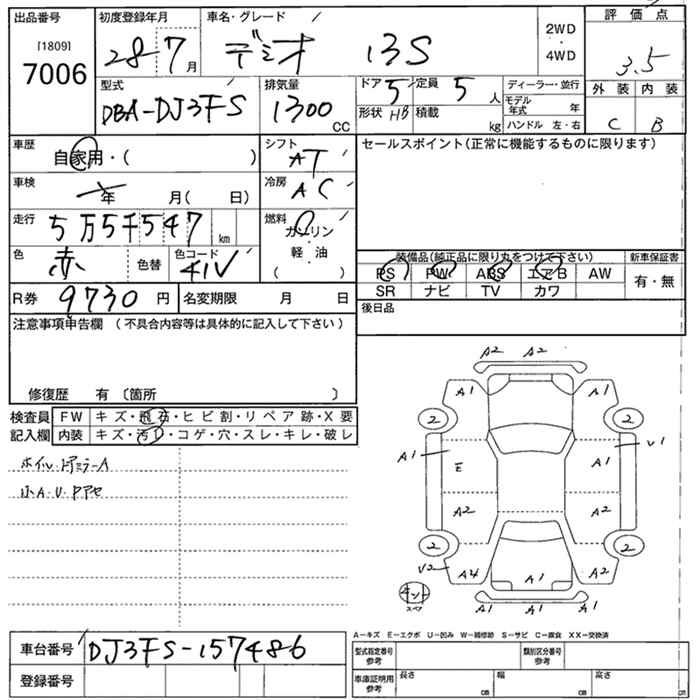 出品番号
[1809]
7006
初度登録年月
28-7月
車名・グレード
デミオ 13S
2WD
・
4WD
評価点
3.5
外装 内装
C B
型式
DBA-DJ3FS
排気量
1300
CC
ドア 5
定員 5人
形状 HB
積載 kg
ディーラー・並行
モデル年式 年
ハンドル 左・右
車歴
自家用・( )
シフト
AT
車検
年 月( 日)
冷房
AC
走行
5万5千547 km
燃料
ガソリン
・
軽・油
( )
色
赤
色替
色コード
41V
R券 9730円
名変期限 月 日
セールスポイント(正常に機能するものに限ります)
装備品(純正品に限り丸をつけて下さい)
PS PW ABS エアB AW
SR ナビ TV カワ
新車保証書
有・無
後日品
注意事項申告欄 (不具合内容等は具体的に記入して下さい)
修復歴 有〔箇所 〕
検査員記入欄
FW キズ・飛石・ヒビ割・リペア跡・X要
内装 キズ・汚レ・コゲ・穴・スレ・キレ・破レ
ホイル・ドアミラーA
小A・U・Pアセ
A2 A2
A1 A1
2 2
A1 E A1 V1
A2 A2
2 2
V2 A4 A1 A2
A1 A1 A1
スペア
車台番号 DJ3FS-157486
登録番号
A－キズ E－エクボ U－凹み W－補修跡 S－サビ C－腐食 XX－交換済
型式指定番号
参考
類別区分番号
参考
車庫証明用
参考
長さ cm
幅 cm
高さ cm